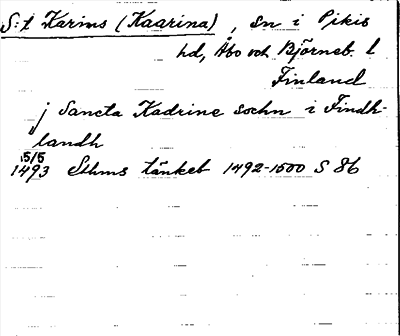 S:t Karins (Kaarina), sn i Pikis
hd, Åbo och Björneb. l
Finland
j Sancta Kadrine sochn i Findh-
landh
15/5
1493 Sthms tänkeb 1492-1500 S 86